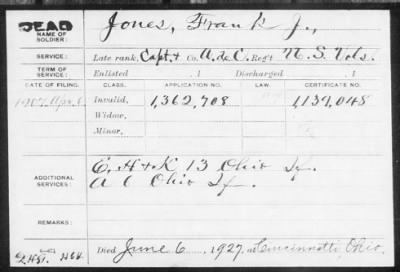 DEAD
NAME OF SOLDIER: Jones, Frank J.,
SERVICE: Late rank, Capt. + Co. A. d C. Reg't U. S. Vols.
TERM OF SERVICE: Enlisted , 1 Discharged , 1
DATE OF FILING. CLASS. APPLICATION NO. LAW. CERTIFICATE NO.
1907 Apr. 6 Invalid, 1,362,708 1,139,048
Widow,
Minor,
ADDITIONAL SERVICES: E, H + K 13 Ohio If.
A 6 Ohio If.
REMARKS:
Died June 6, 1927, at Cincinnati, Ohio.